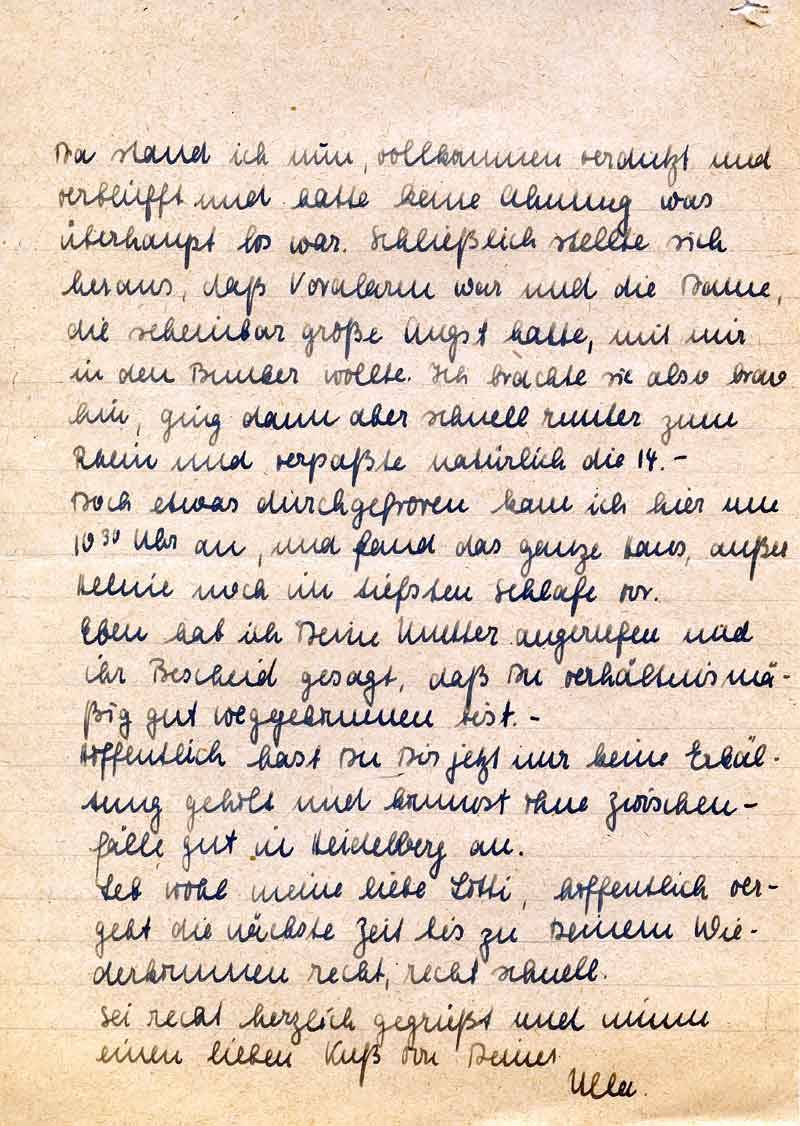 Da stand ich nun, vollkommen verdutzt und
verblüfft und hatte keine Ahnung was
überhaupt los war. Schließlich stellte sich
heraus, daß Voralarm war und die Dame,
die scheinbar große Angst hatte, mit mir
in den Bunker wollte. Ich brachte sie also brav
hin, ging dann aber schnell runter zum
Rhein und verpaßte natürlich die 14.-
Doch etwas durchgefroren kam ich hier um
10 30 Uhr an, und fand das ganze Haus, außer
noch im tiefsten Schlafe vor.
Eben hab ich Deine Mutter angerufen und
ihr Bescheid gesagt, daß Du verhältnismä-
ßig gut weggekommen bist.-
Hoffentlich hast Du Dir jetzt nur keine Erkäl-
tung geholt und kommst ohne Zwischen-
fälle gut in Heidelberg an.
Leb wohl meine liebe Lotti, hoffentlich ver-
geht die nächste Zeit bis zu Deinem Wie-
derkommen recht, recht schnell.
Sei recht herzlich gegrüßt und nimm
einen lieben Kuß von Deiner
Ulla.